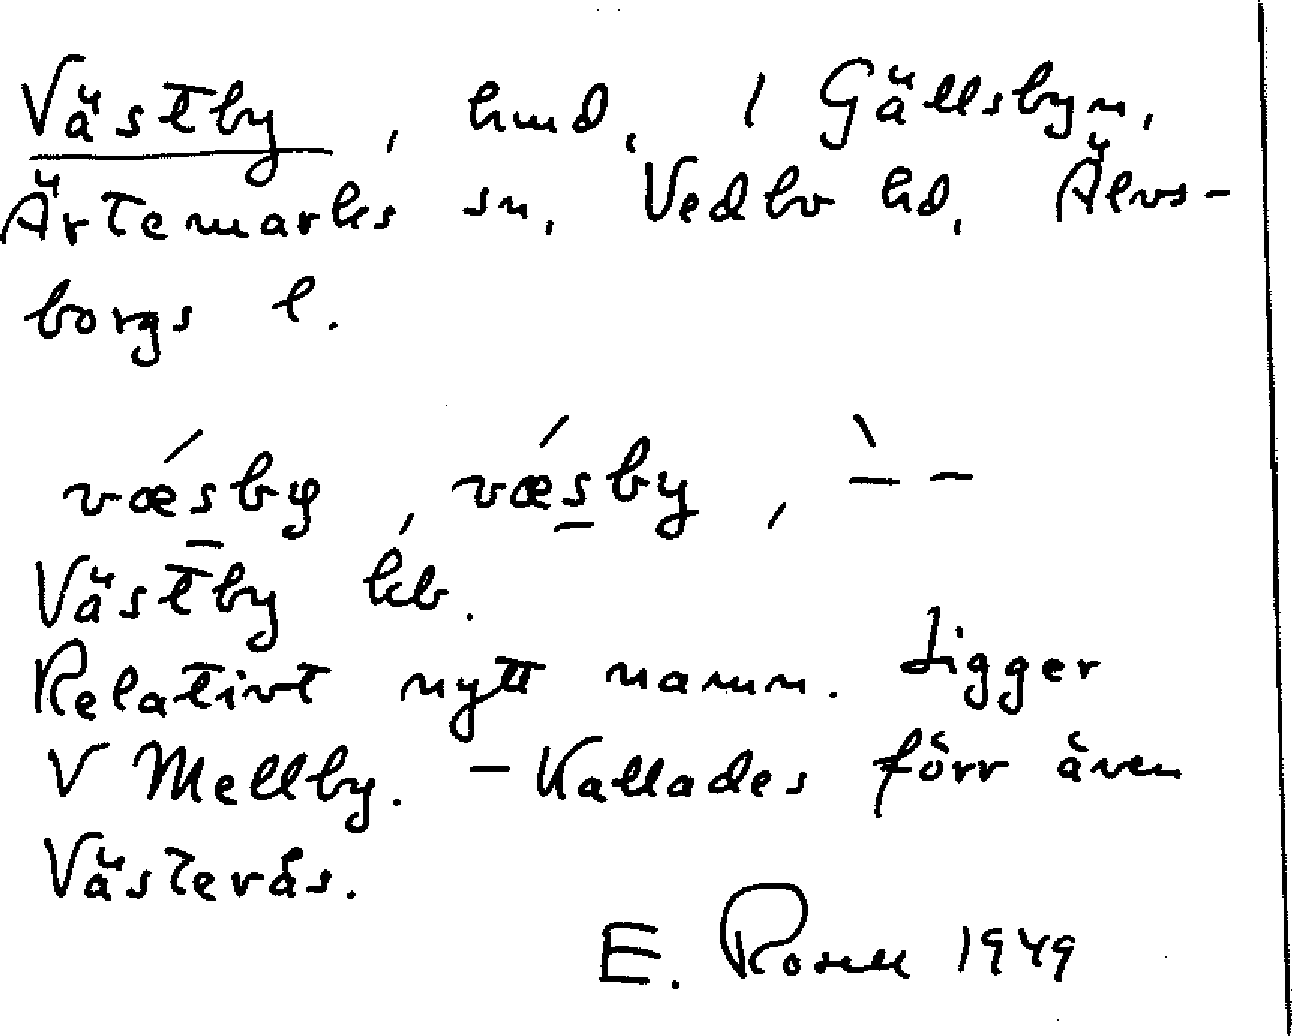 Västby, hmd. i Gällsbyn,
Ärtemarks sn, Vedbo hd, Älvs-
borgs l.
vǽsby, vǽsby, `– –
Västby kb.
Relativt nytt namn. Ligger
V Mellby. – Kallades förr även
Västerås.
E. Rosell 1949